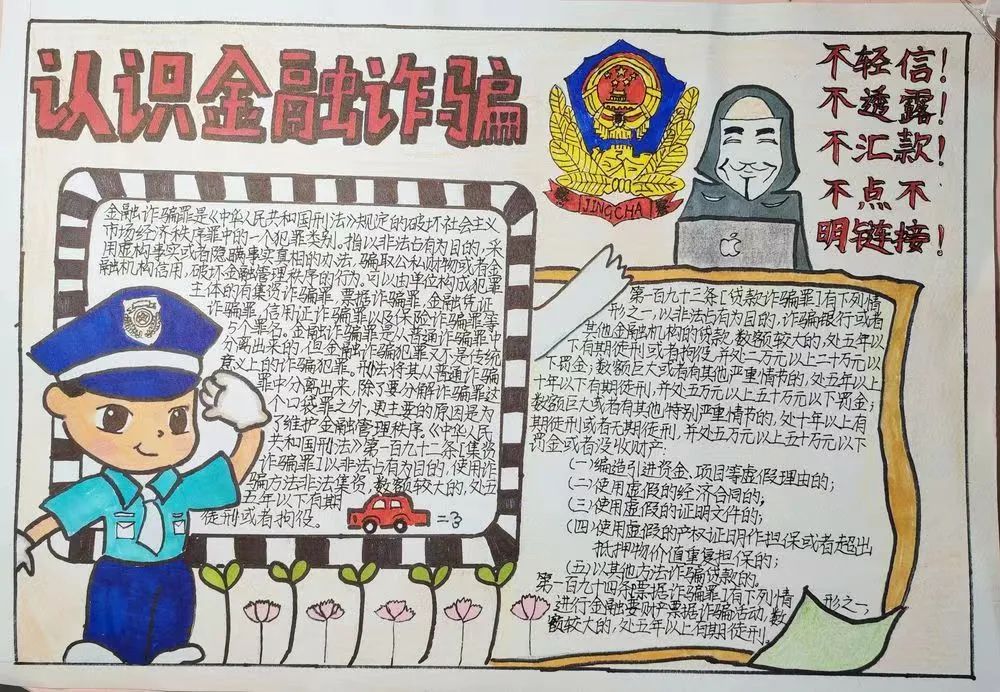 认识金融诈骗
JINGCHA
不轻信!
不透露!
不汇款!
不点不
明链接!
金融诈骗罪是《中华人民共和国刑法》规定的破坏社会主义
市场经济秩序罪中的一个犯罪类别。指以非法占有为目的,采
用虚构事实或者隐瞒事实真相的办法,骗取公私财物或者金
融机构信用,破坏金融管理秩序的行为。可以由单位构成犯罪
主体的有集资诈骗罪、票据诈骗罪、金融凭证
诈骗罪、信用证诈骗罪以及保险诈骗罪等
5个罪名。金融诈骗罪是从普通诈骗罪中
分离出来的,但金融诈骗犯罪又不是传统
意义上的诈骗犯罪。刑法将其从普通诈骗
罪中分离出来,除了要分解诈骗罪这
个口袋罪之外,更主要的原因是为
了维护金融管理秩序。《中华人民
共和国刑法》第一百九十二条[集资
诈骗罪]以非法占有为目的,使用诈
骗方法非法集资,数额较大的,处五
五年以下有期
徒刑或者拘役。
第一百九十三条[贷款诈骗罪]有下列情
形之一,以非法占有为目的,诈骗银行或者
其他金融机构的贷款,数额较大的,处五年以
下有期徒刑或者拘役,并处二万元以上二十万元以
下罚金;数额巨大或者有其他严重情节的,处五年以上
十年以下有期徒刑,并处五万元以上五十万元以下罚金;
数额巨大或者有其他特别严重情节的,处十年以上有
期徒刑或者无期徒刑,并处五万元以上五十万元以下
罚金或者没收财产:
(一)编造引进资金、项目等虚假理由的;
(二)使用虚假的经济合同的;
(三)使用虚假的证明文件的;
(四)使用虚假的产权证明作担保或者超出
抵押物价值重复担保的;
(五)以其他方法诈骗贷款的。
第一百九十四条[票据诈骗罪]有下列情形之一,
进行金融要财产票据诈骗活动,数
额较大的,处五年以上有期徒刑